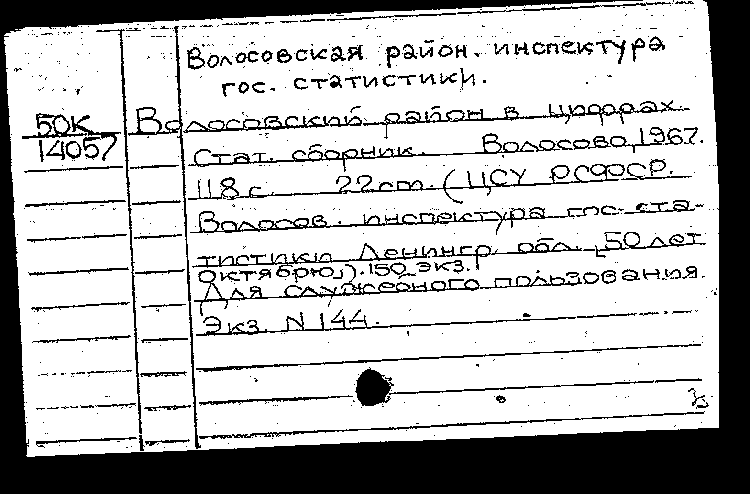 Волосовская район. инспектура
гос. статистики.
50К
14057
Волосовский район в цифрах.
Стат. сборник. Волосово, 1967.
118 с 22 cm. (ЦСУ РСФСР.
Волосов. инспектура гос. ста-
тистики Ленингр. обл. [50 лет
октябрю]). 150 экз.
Для служебного пользования.
Экз. N 144.